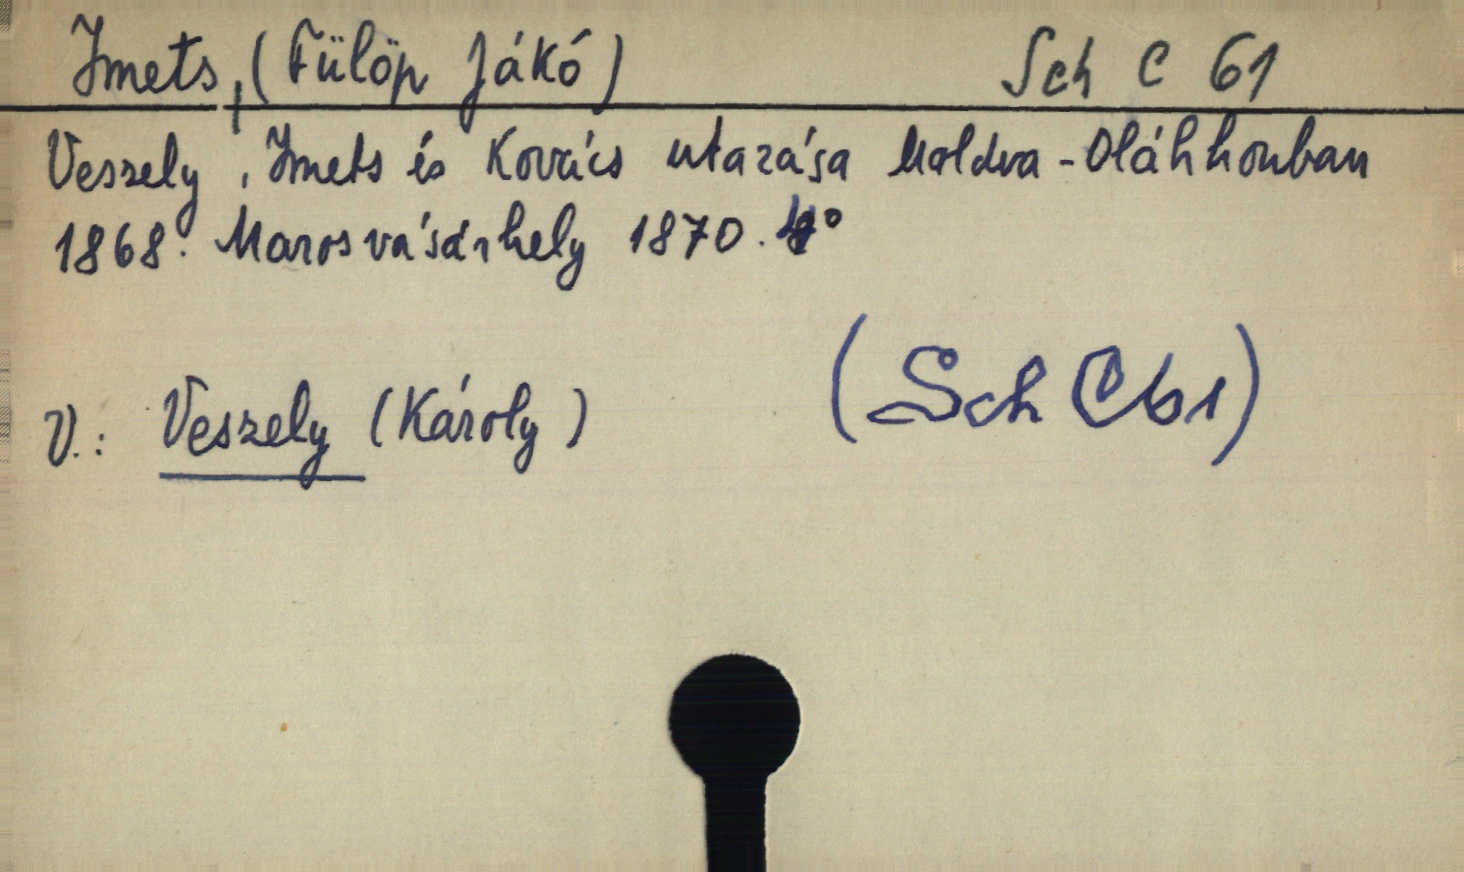 Imets, (Fülöp Jákó) Sch C 61
Veszely, Imets és Kovács utazása Moldva-Oláhhonban
1868. Marosvásárhely 1870. 4°
(Sch C 61)
V.: Veszely (Károly)